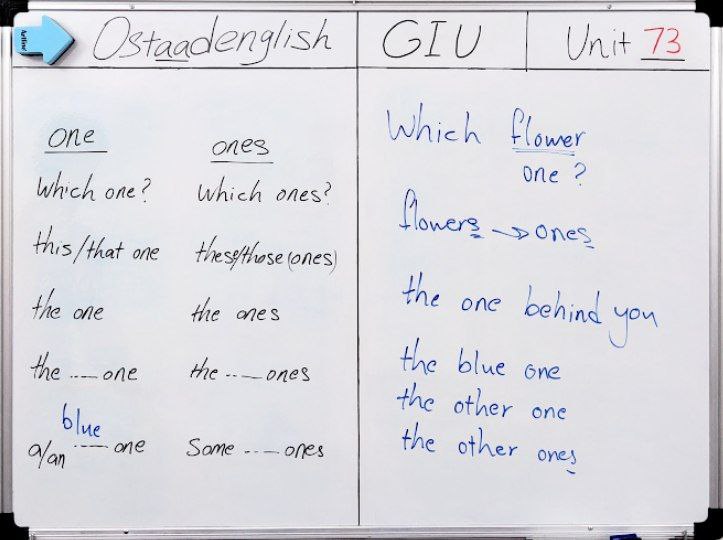 Ostaadenglish
GIU
Unit 73
one
ones
Which one?
Which ones?
this/that one
these/those (ones)
the one
the ones
the ---- one
the ---- ones
blue
a/an ---- one
Some ---- ones
Which flower
one ?
flowers → ones
the one behind you
the blue one
the other one
the other ones